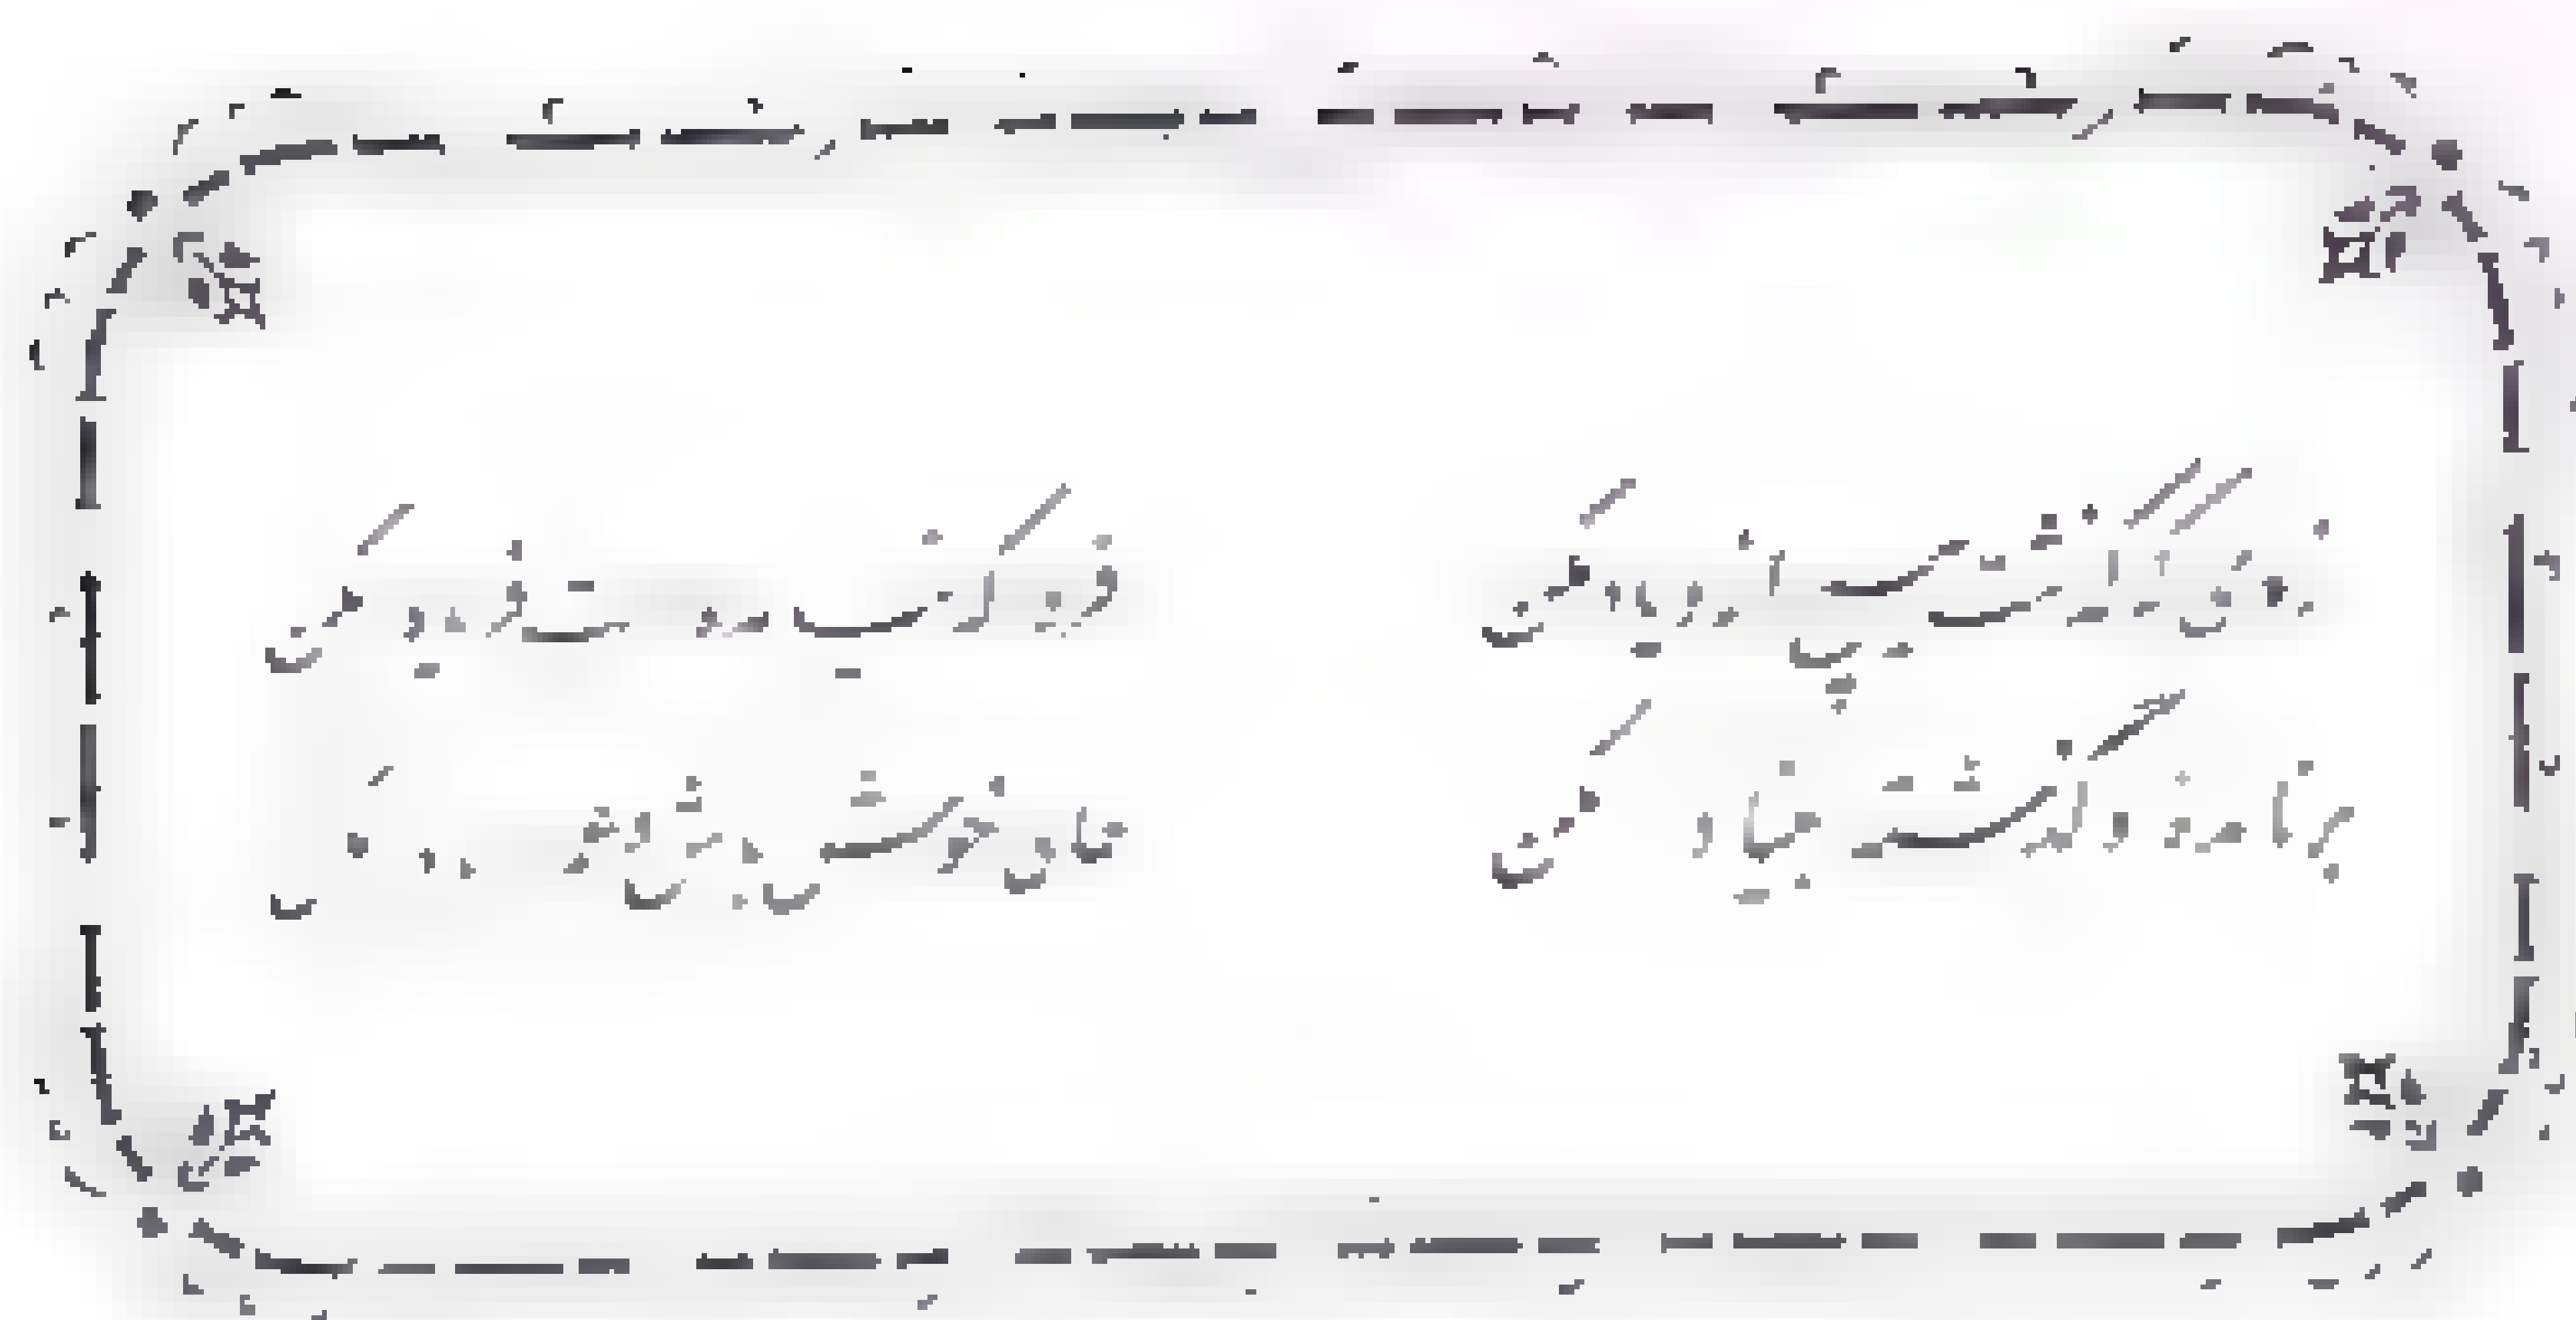 روزی که گذشت هیچ ازو یاد مکن فردا که نیامده ست فریاد مکن
بر نامده و گذشته بنیاد مکن حالی خوش باش و عمر بر باد مکن